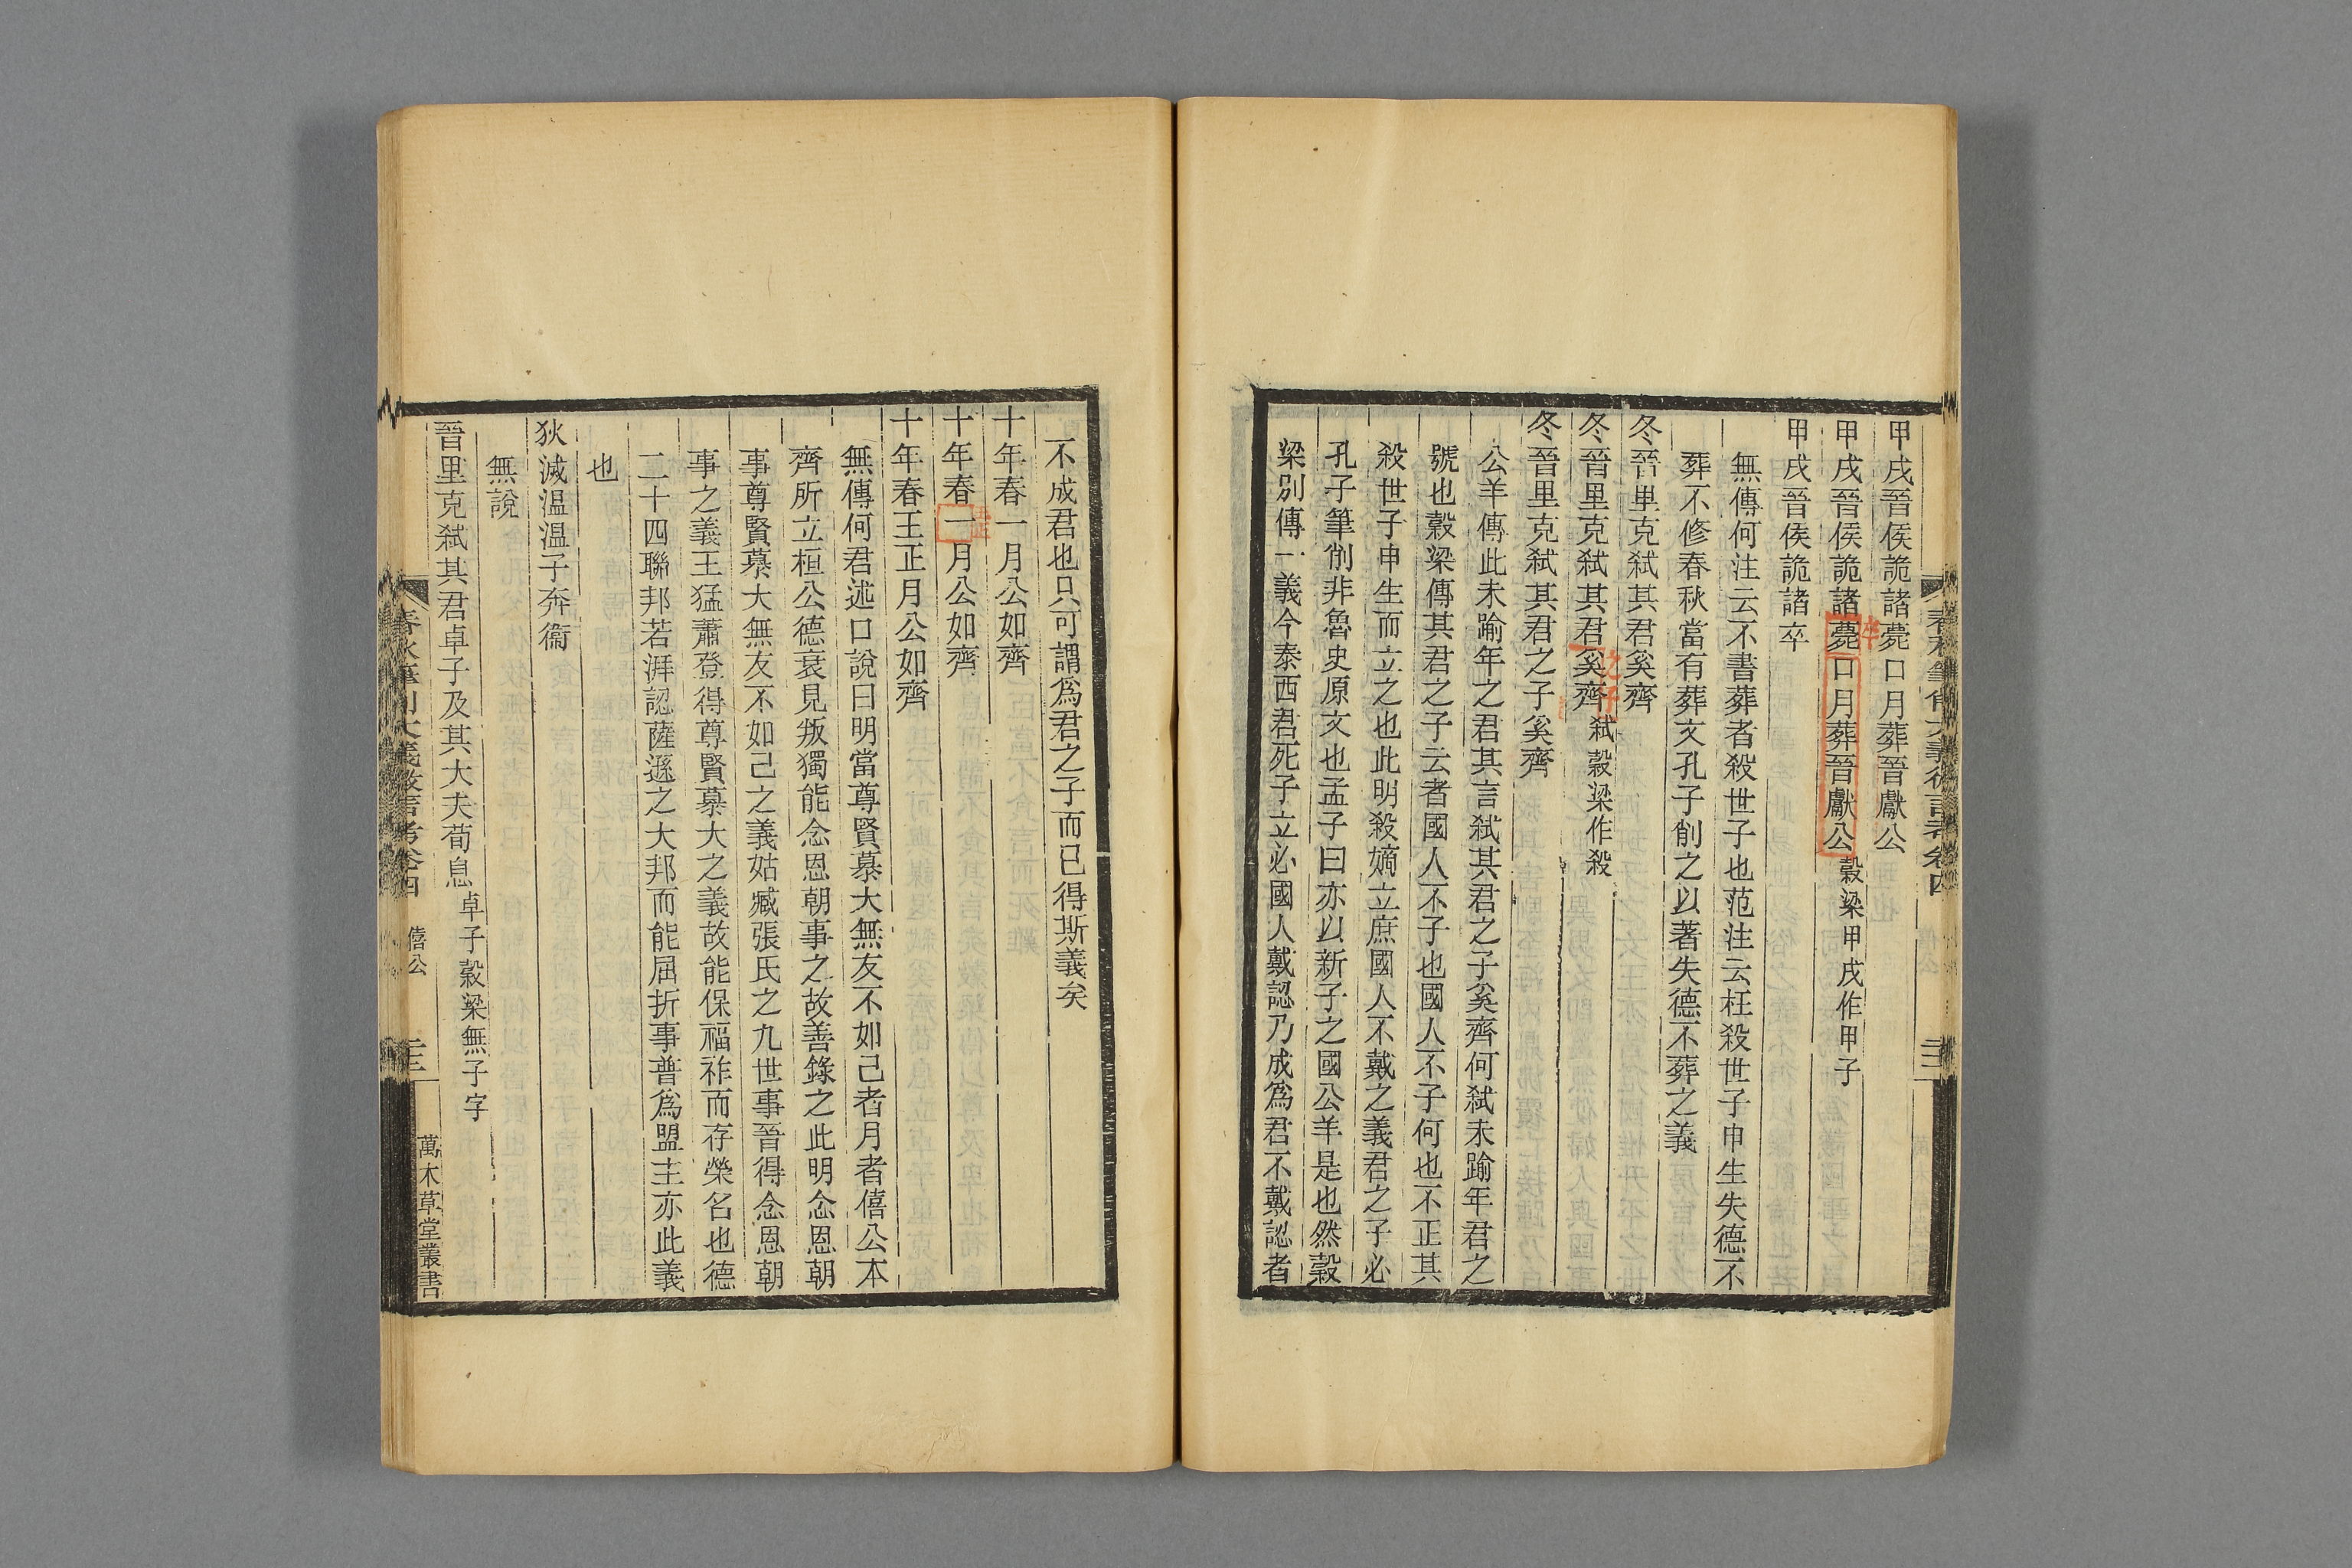 甲戌晉侯詭諸薨口月葬晉獻公
甲戌晉侯詭諸薨口月葬晉獻公穀梁甲戌作甲子
卒
甲戌晉侯詭諸卒
無傳何注云不書葬者殺世子也范注云枉殺世子申生失德不
葬不修春秋當有葬文孔子削之以著失德不葬之義
冬晉里克弒其君奚齊
冬晉里克弒其君奚齊弒穀梁作殺
之子
冬晉里克弒其君之子奚齊
公羊傳此未踰年之君其言弒其君之子奚齊何弒未踰年君之
號也穀梁傳其君之子云者國人不子也國人不子何也不正其
殺世子申生而立之也此明殺嫡立庶國人不戴之義君之子必
孔子筆削非魯史原文也孟子曰亦以新子之國公羊是也然穀
梁別傳一義今泰西君死子立必國人戴認乃成為君不戴認者
不成君也只可謂為君之子而已得斯義矣
十年春一月公如齊
十年春一月公如齊
十年春王正月公如齊
無傳何君述口說曰明當尊賢慕大無友不如己者月者僖公本
齊所立桓公德衰見叛獨能念恩朝事之故善錄之此明念恩朝
事尊賢慕大無友不如己之義姑臧張氏之九世事晉得念恩朝
事之義王猛蕭登得尊賢慕大之義故能保福祚而存榮名也德
二十四聯邦若湃認薩遜之大邦而能屈折事普為盟主亦此義
也
狄滅溫溫子奔衞
無說
晉里克弒其君卓子及其大夫荀息卓子穀梁無子字
春秋筆削大義微言考卷四 僖公
萬木草堂叢書